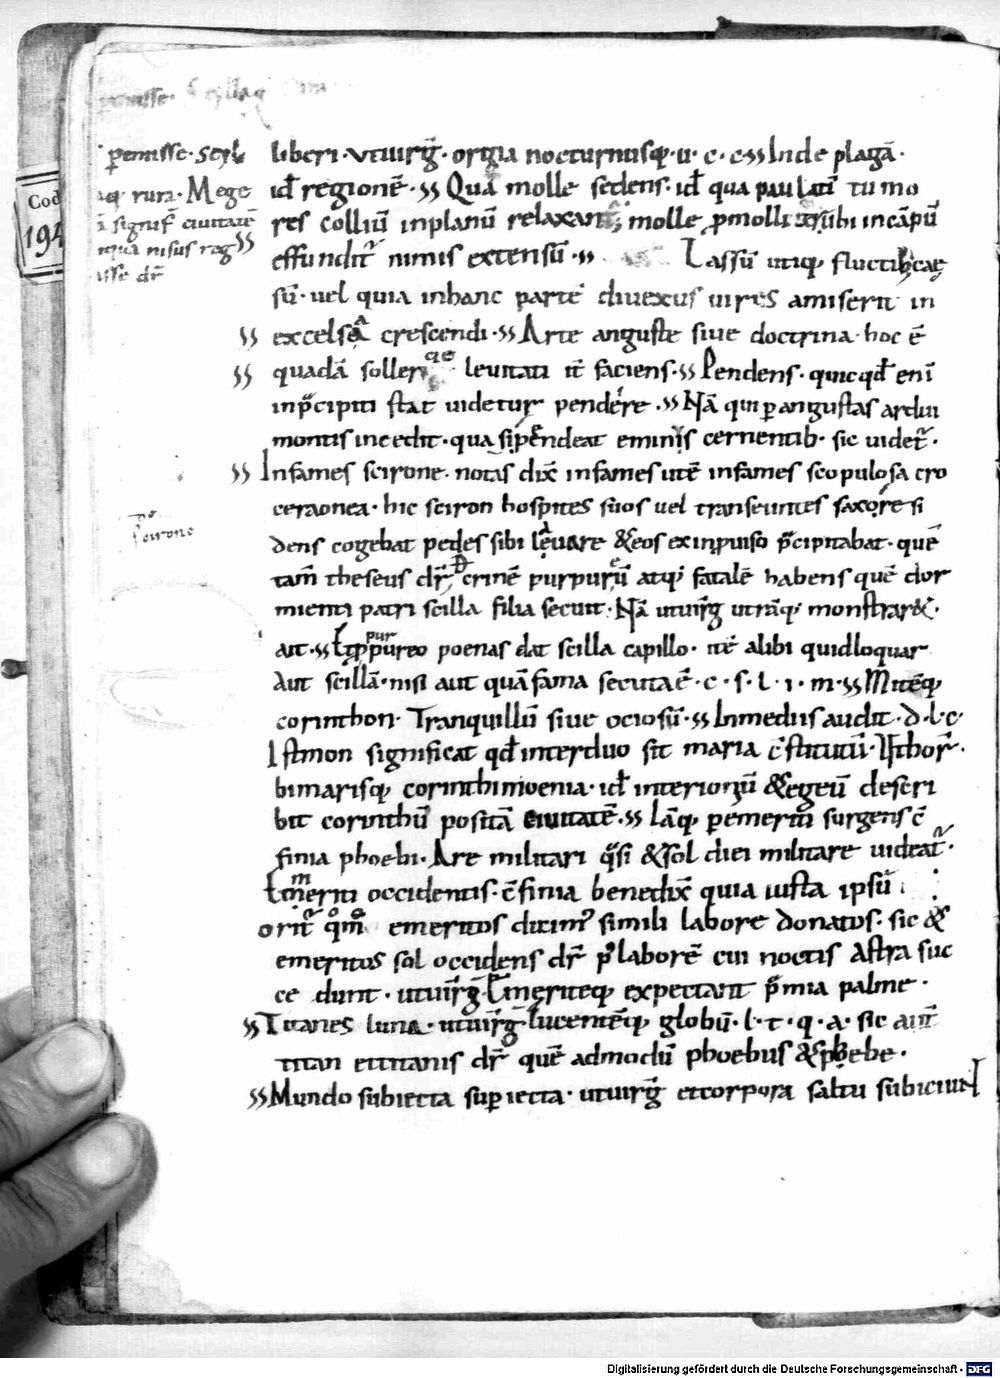 p̄emisse · Scyll
rura · Mege
signif̄ ciuitatē
nisus reg
isse dr̄
Cod
194
liberi · vtuirḡ · orgia nocturnusq; · u · c · c · Inde plagā ·
id̄ regionē · Qua molle sedens · id̄ qua paulati tumo
res colliū inplanū relaxant; molle p̱molliter; ubi incāpū
effundit̄ nimis extensū · Lassū utiq; fluctib;
sū · uel quia inhanc partē diuexus uires amiserit in
excelsa crescendi · Arte anguste siue doctrina · hoc ē
quadā solleri leuitati it̄ faciens · Pendens · quicqd̄ enī
inp̄cipiti stat uidetur pendere · Nā qui p̱angustas ardui
montis incedit · quasi pendeat eminis cernentib; sic uidet̄ ·
Infames scirone · notas dix̄ infames utē infames scopulosa cro
ceraonea · hic sciron hospites suos uel transeuntes saxo re si
dens cogebat pedes sibi leuare & eos ex inpuiso p̄cipitabat · quē
tam̄ theseus dr̄ Crinē purpureū atq; fatalē habens quē dor
mienti patri scilla filia secuit · Nā utuirḡ utraq; monstrar& ·
ait · Et p̱purpureo poenas dat scilla capillo · itē alibi quidloquar
Aut scillā · nisi aut quā fama secuta ē · c · s · l · i · m · Mitēq;
corinthon · Tranquillū siue ociosū · Inmediis audit · d · l · c ·
Istmon significat qd̄ interduo sit maria c̄stitutū · Ut hor̄ ·
bimarisq; corinthi moenia · id̄ interionū & egeū descri
bit corinthū positā ciuitatē · Iāq; p̱emeriti surgens c̄
finia phoebi · Are militari q̄si & sol diei militare uideat̄ ·
Emeriti occidentis · c̄finia benedix̄ quia iuxta ipsū
orit̄ qm̄ emeritos dicim' simili labore donatos · sic &
emeritus sol occidens dr̄ p' laborē cui noctis Astra suc
cedunt · utuirḡ · Emeriteq; expectant p̄mia palme ·
Titanes luna · utuirḡ lucentēq; globū · l · t · q · a · sic aut̄
titan et titanis dr̄ quē admodū phoebus & phebe ·
Mundo subiecta sup̱iecta · utuirḡ et corpora saltu subiciunt
scirone
Digitalisierung gefördert durch die Deutsche Forschungsgemeinschaft - DFG